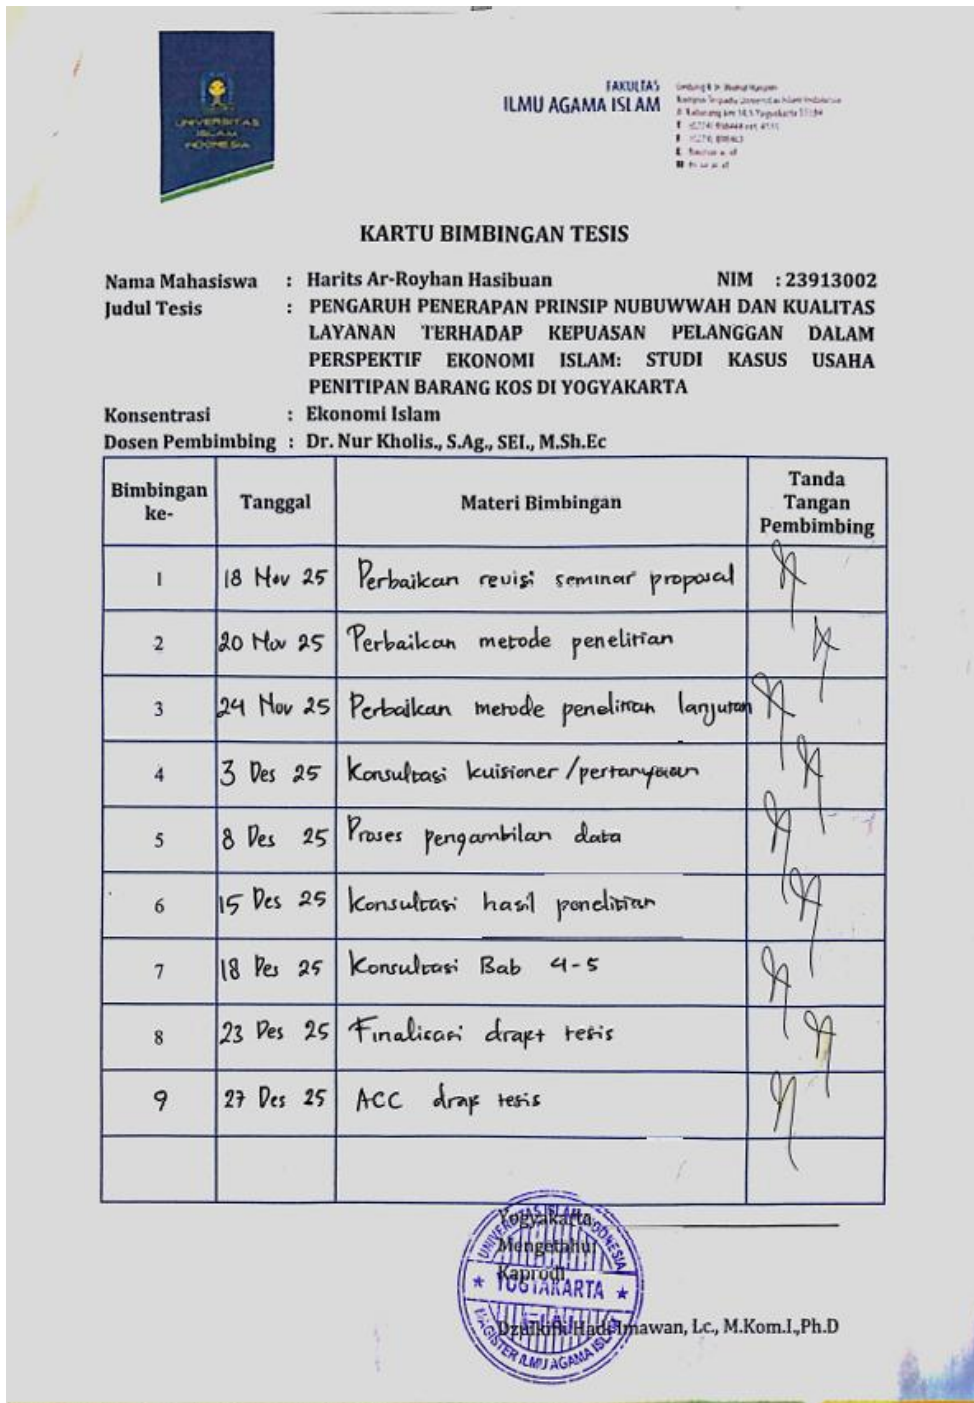 UNIVERSITAS
ISLAM
INDONESIA
FAKULTAS
ILMU AGAMA ISLAM
KARTU BIMBINGAN TESIS
Nama Mahasiswa : Harits Ar-Royhan Hasibuan NIM : 23913002
Judul Tesis : PENGARUH PENERAPAN PRINSIP NUBUWWAH DAN KUALITAS
LAYANAN TERHADAP KEPUASAN PELANGGAN DALAM
PERSPEKTIF EKONOMI ISLAM: STUDI KASUS USAHA
PENITIPAN BARANG KOS DI YOGYAKARTA
Konsentrasi : Ekonomi Islam
Dosen Pembimbing : Dr. Nur Kholis., S.Ag., SEI., M.Sh.Ec
Bimbingan ke- Tanggal Materi Bimbingan Tanda Tangan Pembimbing
1 18 Nov 25 Perbaikan revisi seminar proposal
2 20 Nov 25 Perbaikan metode penelitian
3 24 Nov 25 Perbaikan metode penelitian lanjutan
4 3 Des 25 Konsultasi kuisioner/pertanyaan
5 8 Des 25 Proses pengambilan data
6 15 Des 25 Konsultasi hasil penelitian
7 18 Des 25 Konsultasi Bab 4-5
8 23 Des 25 Finalisasi draft tesis
9 27 Des 25 ACC draf tesis
Yogyakarta,
Mengetahui
Kaprodi
UNIVERSITAS ISLAM INDONESIA
YOGYAKARTA
MAGISTER ILMU AGAMA ISLAM
Dzulkifli Hadi Imawan, Lc., M.Kom.I.,Ph.D